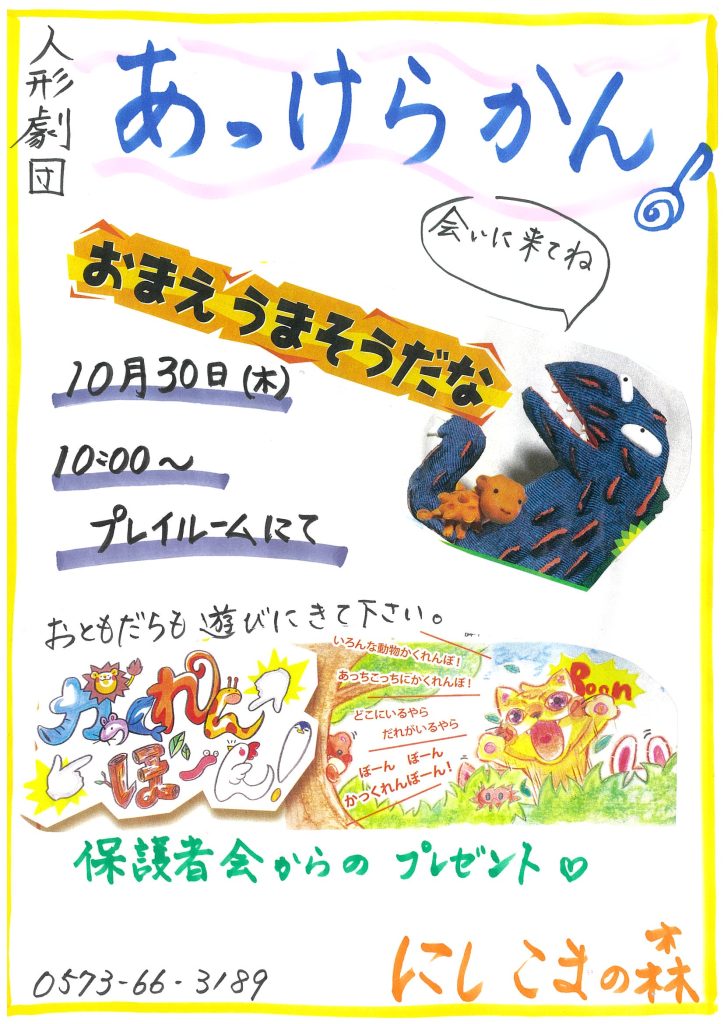 人形劇団
あっけらかん
会いに来てね
おまえうまそうだな
10月30日(木)
10:00～
プレイルームにて
おともだちも遊びにきて下さい。
かくれんぼーん!
いろんな動物かくれんぼ！
あっちこっちにかくれんぼ！
どこにいるやら
だれがいるやら
ぼーん ぼーん
かっくれんぼーん！
Boon
保護者会からの プレゼント♡
にしこまの森
0573-66-3189